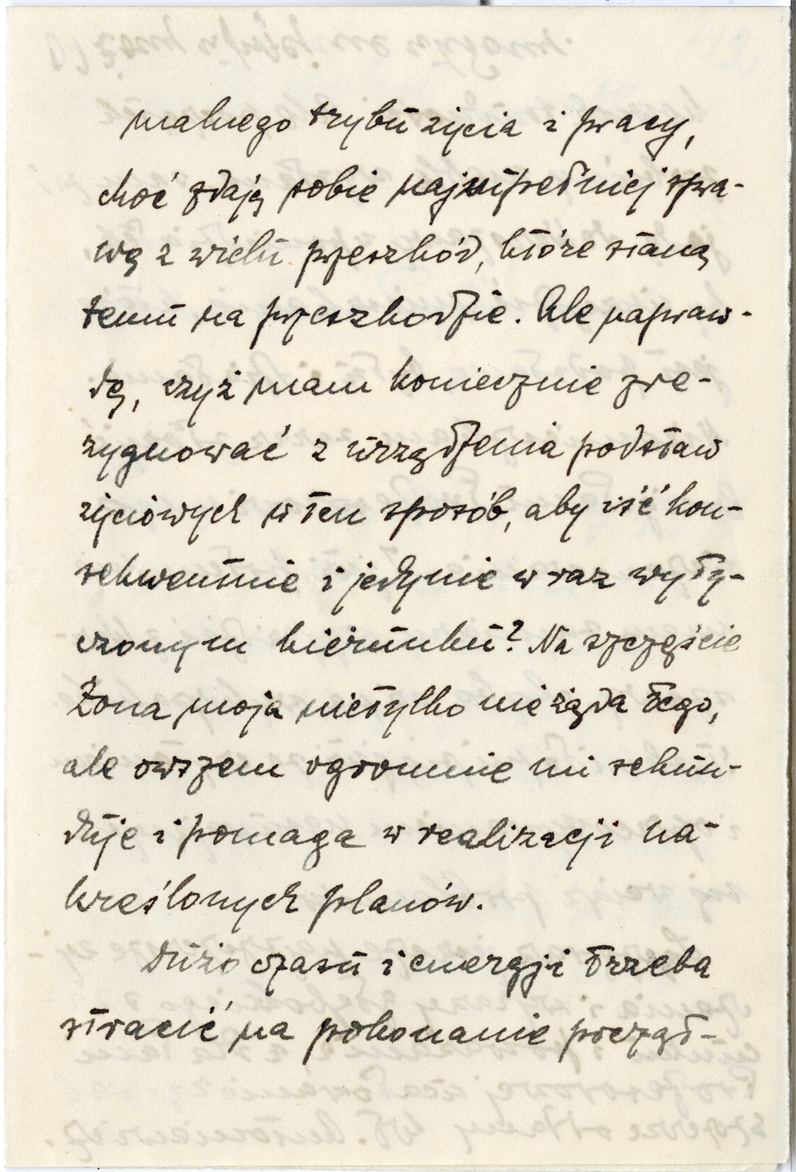 malnego trybu życia i pracy,
choć zdaję sobie najzupełniej spra-
wę z wielu przeszkód, które staną
temu na przeszkodzie. Ale napraw-
dę, czyż mam koniecznie zre-
zygnować z urządzenia podstaw
życiowych w ten sposób, aby iść kon-
sekwentnie i jedynie w raz wyty-
czonym kierunku? Na szczęście
Żona moja nietylko nie żąda tego,
ale owszem ogromnie mi sekun-
duje i pomaga w realizacji na-
kreślonych planów.
Dużo czasu i energji trzeba
stracić na pokonanie początk-